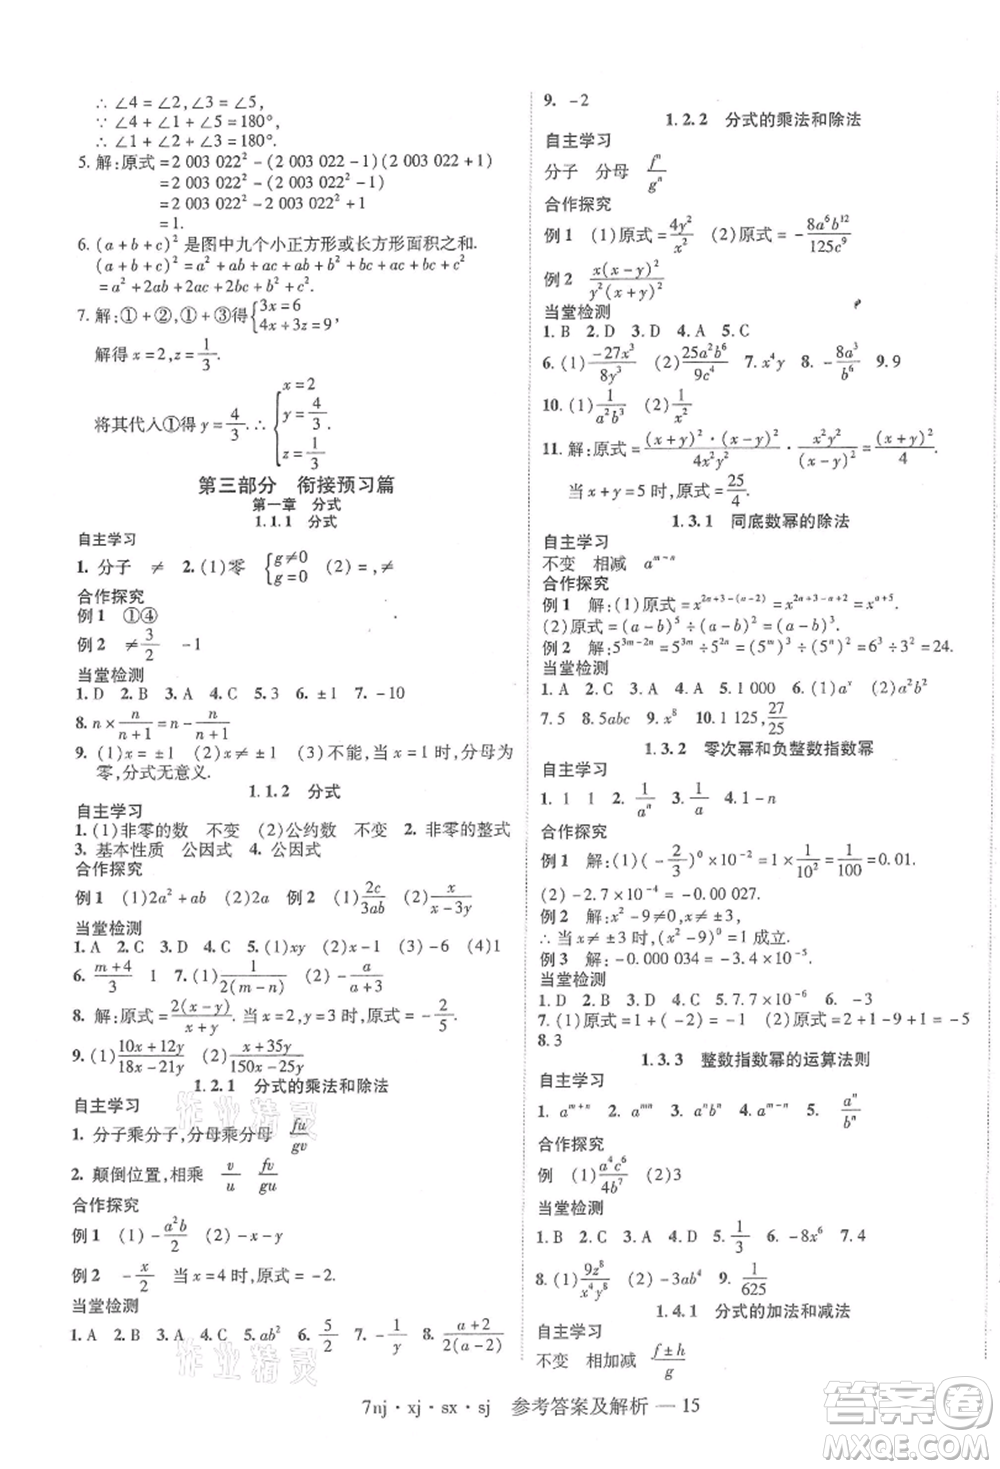 ∴ ∠4 = ∠2, ∠3 = ∠5.
∵ ∠4 + ∠1 + ∠5 = 180°,
∴ ∠2 + ∠1 + ∠3 = 180°.
5. 解:原式 = 2 003 022² - (2 003 022 - 1)(2 003 022 + 1)
= 2 003 022² - (2 003 022² - 1)
= 2 003 022² - 2 003 022² + 1
= 1.
6. (a + b + c)² 是图中九个小正方形或长方形面积之和.
(a + b + c)² = a² + ab + ac + ab + b² + bc + ac + bc + c²
= a² + 2ab + 2ac + 2bc + b² + c².
7. 解:① + ②,① + ③得 {3x = 6 4x + 3z = 9
解得 x = 2, z = 1/3.
将其代入①得 y = 4/3. ∴ {x = 2 y = 4/3 z = 1/3
第三部分 衔接预习篇
第一章 分式
1.1.1 分式
自主学习
1. 分子 ≠ 2. (1)零 {g≠0 g=0 (2) = , ≠
合作探究
例 1 ①④
例 2 ≠ 3/2 -1
当堂检测
1. D 2. B 3. A 4. C 5. 3 6. ±1 7. -10
8. n × n/(n+1) = n - n/(n+1)
9. (1)x = ±1 (2)x = 1 (3)不能,当 x = -1 时,分母为
零,分式无意义.
1.1.2 分式
自主学习
1. (1)非零的数 不变 (2)公约数 不变 2. 非零的整式
3. 基本性质 公因式 4. 公因式
合作探究
例 1 (1)2a² + ab (2)2a 例 2 (1) 2c/3ab (2) x/(x-3y)
当堂检测
1. A 2. C 3. D 4. C 5. (1)xy (2)x (3) -6 (4)1
6. (m+4)/3 1 7. (1) 1/2(m-n) (2) - a/(a+3)
8. 解:原式 = 2(x-y)/(x+y). 当 x = 2, y = 3 时,原式 = - 2/5
9. (1) (10x+12y)/(18x-21y) (2) (x+35y)/(150x-25y)
1.2.1 分式的乘法和除法
自主学习
1. 分子乘分子,分母乘分母 fu/gv
2. 颠倒位置,相乘 v/u fv/gu
合作探究
例 1 (1) - a²b/2 (2) -x -y
例 2 - x/2 当 x = 4 时,原式 = -2.
当堂检测
1. A 2. D 3. A 4. C 5. ab² 6. 5/2 7. - 1/y 8. (a+2)/2(a-2)
9. -2
1.2.2 分式的乘法和除法
自主学习
分子 分母 fⁿ/gⁿ
合作探究
例 1 (1)原式 = 4y²/x² (2)原式 = - 8a⁶b¹²/125c⁹
例 2 x(x-y)²/y²(x+y)
当堂检测
1. B 2. D 3. D 4. A 5. C
6. (1) -27x³/8y³ (2) 25a²b⁶/9c⁴ 7. x⁴y 8. - 8a³/b⁶ 9. 9
10. (1) 1/a²b³ (2) - x/y
11. 解:原式 = (x+y)²·(x-y)²/4x²y² · x²y²/(x-y)² = (x+y)²/4.
当 x + y = 5 时,原式 = 25/4
1.3.1 同底数幂的除法
自主学习
不变 相减 aᵐ⁻ⁿ
合作探究
例 1 解:(1)原式 = x²ᵃ⁺³⁻⁽ᵃ⁻²⁾ = x²ᵃ⁺³⁻ᵃ⁺² = xᵃ⁺⁵.
(2)原式 = (a-b)⁵ ÷ (a-b)² = (a-b)³.
例 2 解:5³ᵐ⁻²ⁿ = 5³ᵐ ÷ 5²ⁿ = (5ᵐ)³ ÷ (5ⁿ)² = 6³ ÷ 3² = 24.
当堂检测
1. A 2. C 3. A 4. C 5. 1 000 6. (1)aˣ (2)a²b²
7. 5 8. 5abc 9. x⁸ 10. 1 125, 27/25
1.3.2 零次幂和负整数指数幂
自主学习
1. 1 1 2. 1/aⁿ 3. 1/a 4. 1-n
合作探究
例 1 解:(1)(- 2/3)⁰ × 10⁻² = 1 × 1/10² = 1/100 = 0. 01.
(2) -2. 7 × 10⁻⁴ = -0. 00 027.
例 2 解:x² - 9≠0, x≠ ±3,
∴ 当 x≠ ±3 时,(x² - 9)⁰ = 1 成立.
例 3 解: -0. 000 034 = -3. 4 × 10⁻⁵.
当堂检测
1. D 2. D 3. B 4. A 5. 7. 7 × 10⁻⁶ 6. -3
7. (1)原式 = 1 + (-2) = -1 (2)原式 = -8 + 1 + 1 + 1 = -5
8. 3
1.3.3 整数指数幂的运算法则
自主学习
1. aᵐ⁺ⁿ 2. aᵐⁿ 3. aⁿbⁿ 4. aᵐ⁻ⁿ 5. aⁿ/bⁿ
合作探究
例 (1) a⁴c⁶/4b⁷ (2)3
当堂检测
1. D 2. C 3. B 4. D 5. 1/3 6. -8x⁶ 7. 4
8. (1) 9z⁸/x⁴y⁸ (2) -3ab⁴ 9. 1/625
1.4.1 分式的加法和减法
自主学习
不变 相加减 (f±h)/g
7nj · xj · sx · sj 参考答案及解析 — 15
作业精灵
作业精灵
答案圈
MXQE.COM